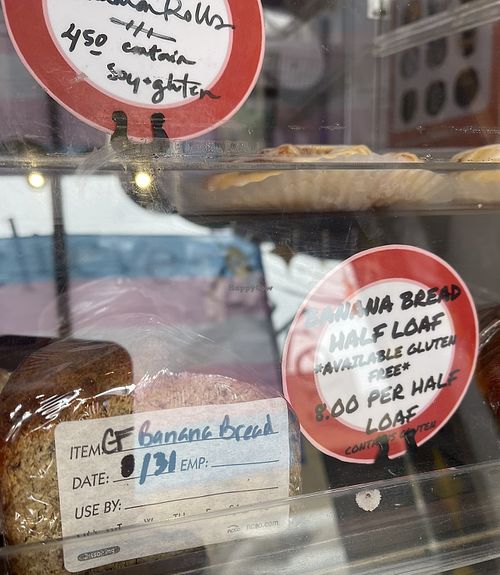 Rolls
4.50 contain
soy + gluten
HappyCow
BANANA BREAD
HALF LOAF
*AVAILABLE GLUTEN
FREE*
8.00 PER HALF
LOAF
CONTAINS GLUTEN
ITEM: GF Banana Bread
DATE: /31 EMP:
USE BY:
ncco ncco.com